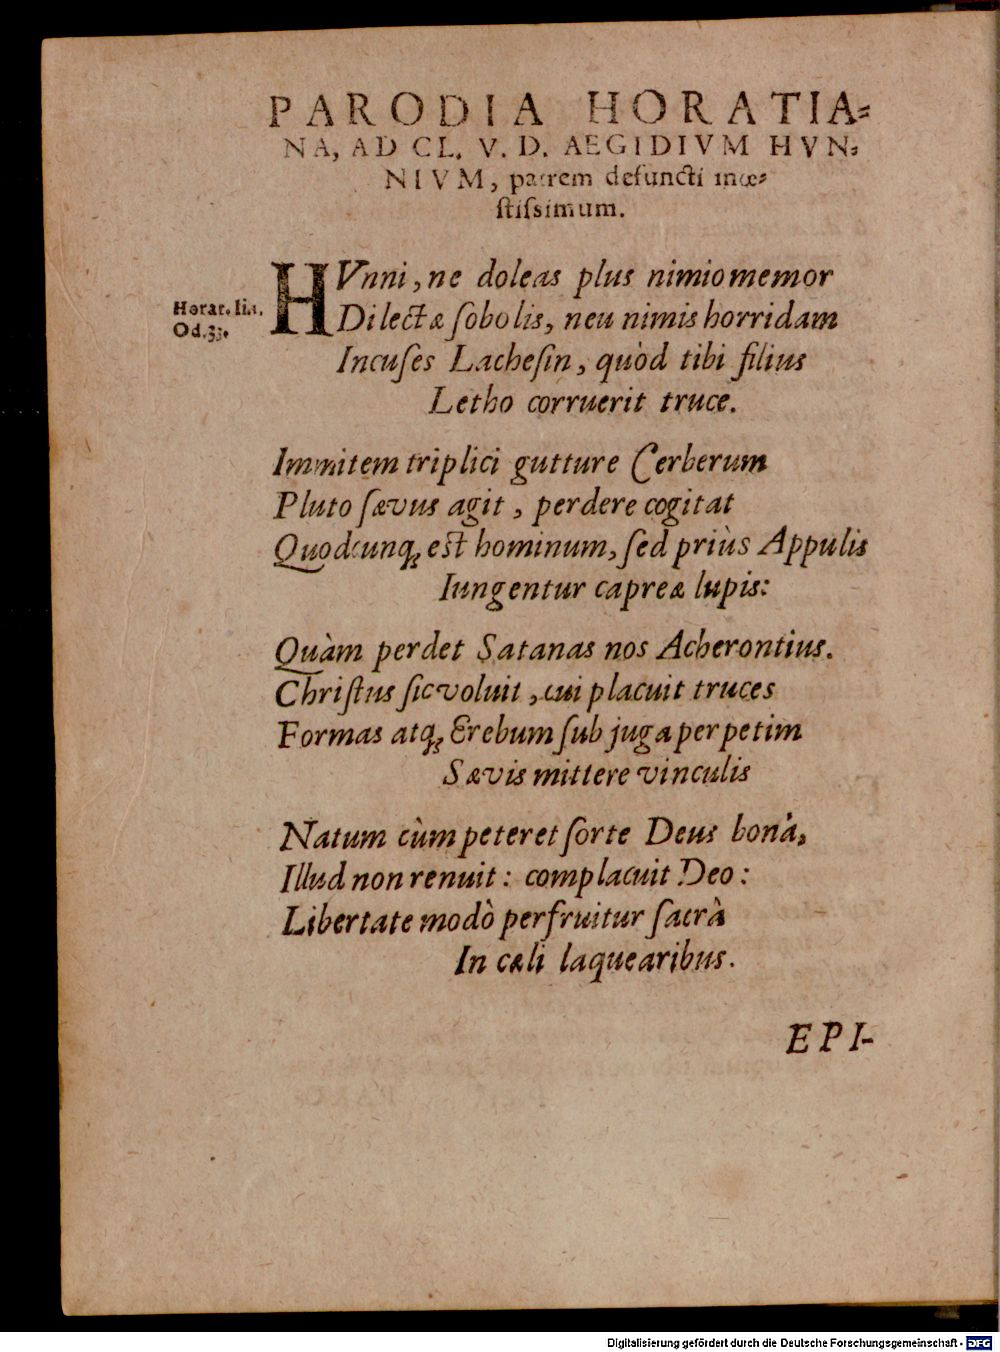 PARODIA HORATIA⸗
NA, AD CL. V. D. AEGIDIVM HVN⸗
NIVM, patrem defuncti mœ⸗
ſtiſsimum.
HVnni, ne doleas plus nimio memor
Horat. li.1.
Od.33.
Dilectæ ſobolis, neu nimis horridam
Incuſes Lacheſin, quòd tibi filius
Letho corruerit truce.
Immitem triplici gutture Cerberum
Pluto ſævus agit, perdere cogitat
Quodcunq; est hominum, ſed priùs Appulis
Iungentur capreæ lupis:
Quàm perdet Satanas nos Acherontius.
Chriſtus ſic voluit, cui placuit truces
Formas atq; Erebum ſub juga perpetim
Sævis mittere vinculis
Natum cùm peteret ſorte Deus bonâ,
Illud non renuit: complacuit Deo:
Libertate modò perfruitur ſacrà
In cæli laquearibus.
EPI-
Digitalisierung gefördert durch die Deutsche Forschungsgemeinschaft - DFG